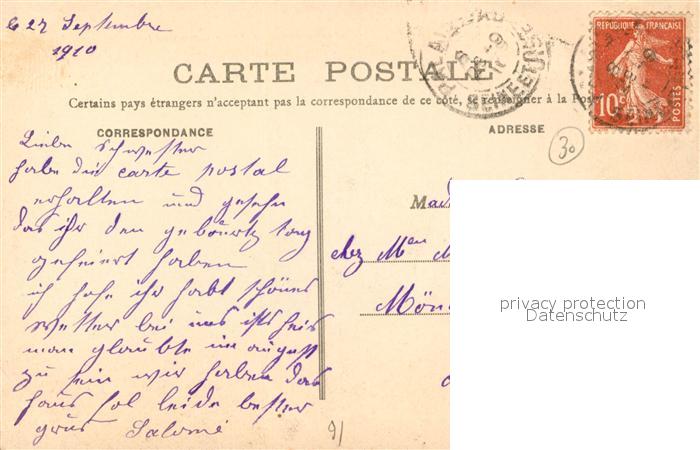 le 27 Septembre
1910
CARTE POSTALE
Certains pays étrangers n'acceptent pas la correspondance de ce côté, se renseigner à la Poste
CORRESPONDANCE
ADRESSE
REPUBLIQUE FRANÇAISE
10c
POSTES
SEINE ET OISE
30
Liebe Schwester
habe die carte postal
erhalten und gesehn
das ihr den gebeurtz tag
gefeiert haben
ich hofe ihr habt schönes
Wetter bei uns ists heis
man glaubte im augost
zu sein wir haben das
haus sol leide bester
grus Salomé
Mad
chez Men M
Mön
91
privacy protection
Datenschutz